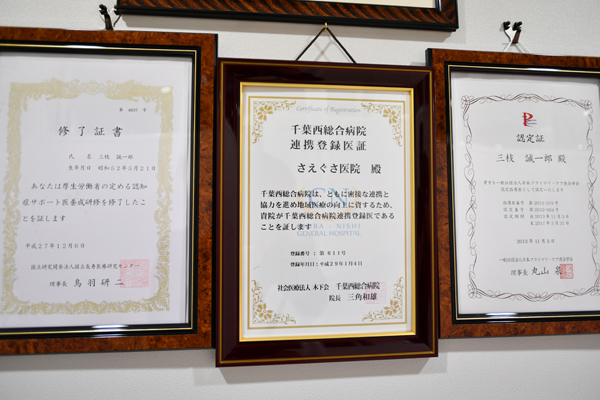 第 4697 号
修了証書
氏 名 三枝 誠一郎
生年月日 昭和52年5月21日
あなたは厚生労働省の定める認知
症サポート医養成研修を修了したこ
とを証します
平成27年12月6日
国立研究開発法人国立長寿医療研究センター
理事長 鳥羽研二
Certificate of Registration
千葉西総合病院
連携登録医証
さえぐさ医院 殿
千葉西総合病院は、ともに密接な連携と
協力を進め地域医療の向上に資するため、
貴院が千葉西総合病院連携登録医である
ことを証します
NISHI
GENERAL HOSPITAL
登録番号：第611号
登録年月日：平成29年1月4日
社会医療法人 木下会 千葉西総合病院
院長 三角和雄
認定証
三枝 誠一郎 殿
2013年11月3日
一般社団法人日本プライマリ・ケア連合学会
理事長 丸山 泉